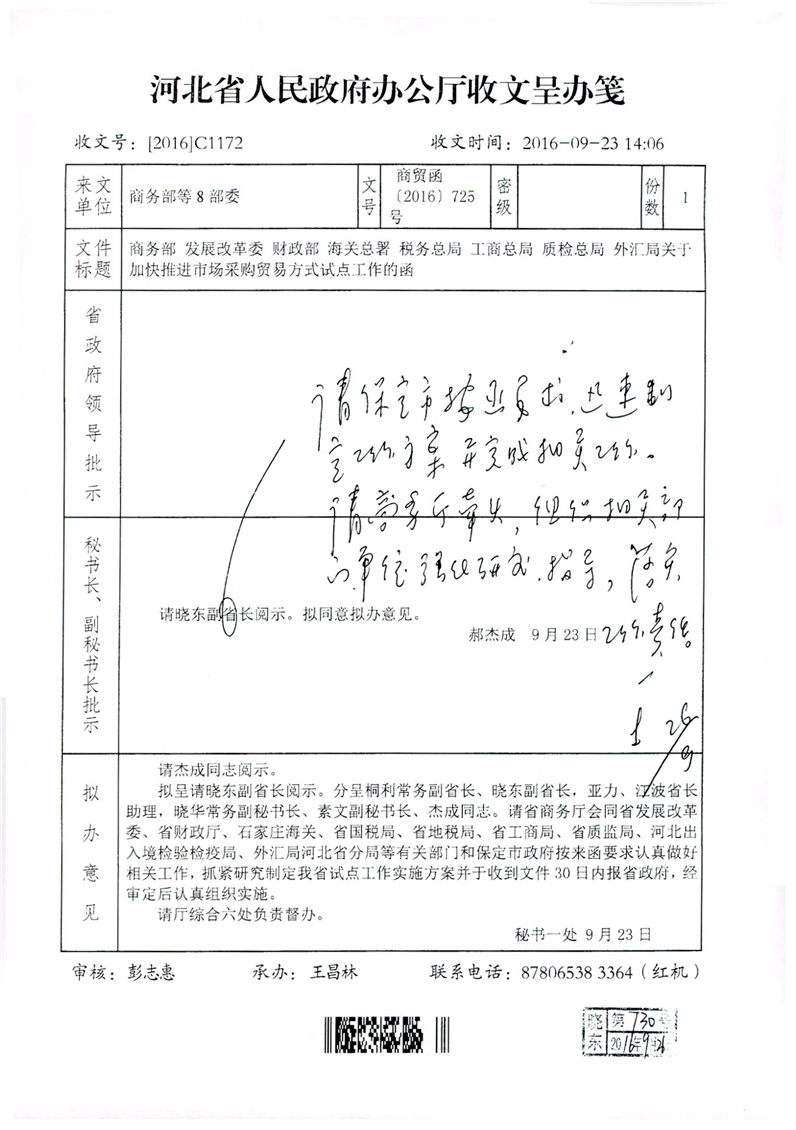 河北省人民政府办公厅收文呈办笺
收文号：[2016]C1172 收文时间：2016-09-23 14:06
来文单位 商务部等8部委 文号 商贸函〔2016〕725号 密级 份数 1
文件标题 商务部 发展改革委 财政部 海关总署 税务总局 工商总局 质检总局 外汇局关于
加快推进市场采购贸易方式试点工作的函
省政府领导批示
请保定市按照要求，迅速制
定工作方案并完成相关工作。
请商务厅牵头，组织相关部
门单位强化研究、指导，落实
工作责任
秘书长、副秘书长批示
请晓东副省长阅示。拟同意拟办意见。
郝杰成 9月23日
26/9
拟办意见
请杰成同志阅示。
拟呈请晓东副省长阅示。分呈桐利常务副省长、晓东副省长，亚力、江波省长
助理，晓华常务副秘书长、素文副秘书长、杰成同志。请省商务厅会同省发展改革
委、省财政厅、石家庄海关、省国税局、省地税局、省工商局、省质监局、河北出
入境检验检疫局、外汇局河北省分局等有关部门和保定市政府按来函要求认真做好
相关工作，抓紧研究制定我省试点工作实施方案并于收到文件30日内报省政府，经
审定后认真组织实施。
请厅综合六处负责督办。
秘书一处 9月23日
审核：彭志惠 承办：王昌林 联系电话：87806538 3364（红机）
晓东 第730号
2016年9月26